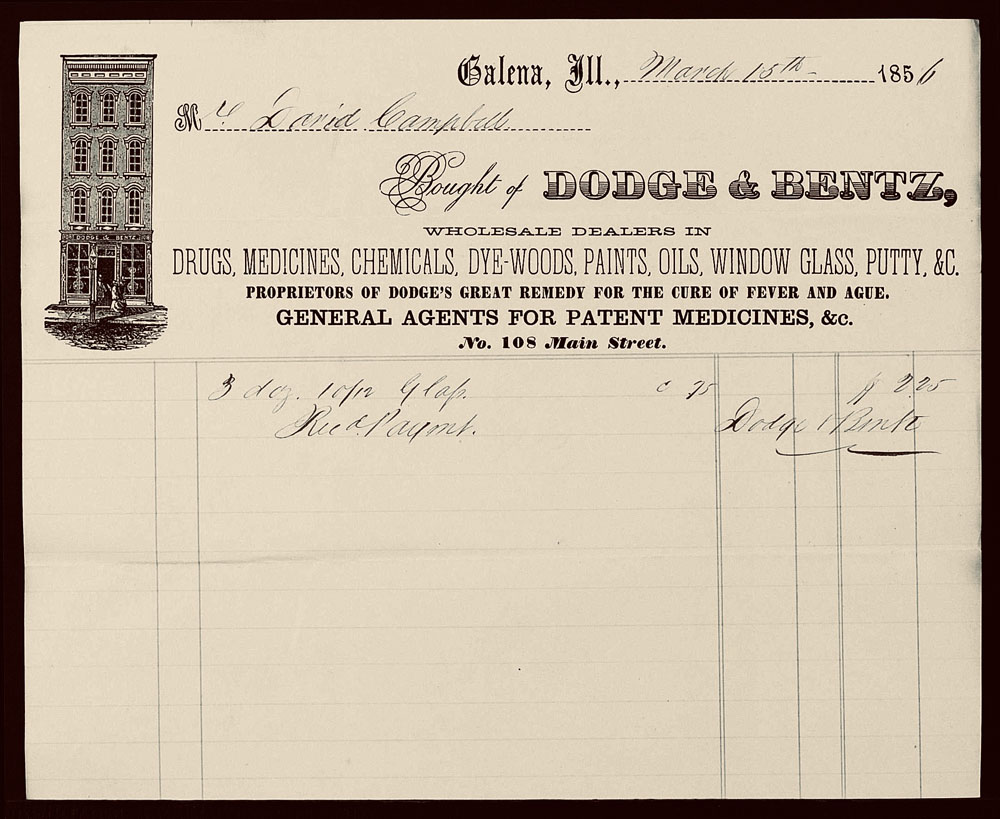 Galena, Ill., March 15th 1856
Mr David Campbell
Bought of DODGE & BENTZ,
WHOLESALE DEALERS IN
DRUGS, MEDICINES, CHEMICALS, DYE-WOODS, PAINTS, OILS, WINDOW GLASS, PUTTY, &C.
PROPRIETORS OF DODGE'S GREAT REMEDY FOR THE CURE OF FEVER AND AGUE.
GENERAL AGENTS FOR PATENT MEDICINES, &c.
No. 108 Main Street.
DODGE & BENTZ
3 doz. 10/12 Glass. c 75 $ 2.25
Recd. Paymt. Dodge & Bentz